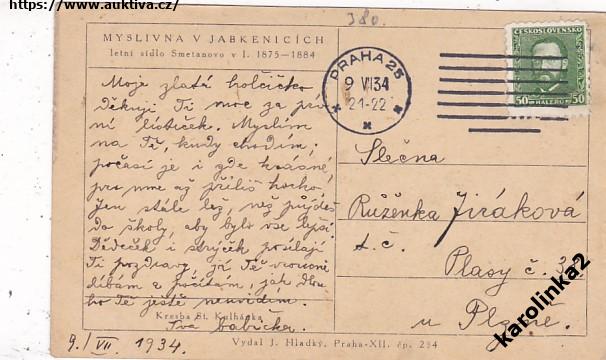 https://www.auktiva.cz/
380.
MYSLIVNA V JABKENICÍCH
letní sídlo Smetanovo v l. 1875-1884
Moje zlatá holčičko
děkuji Ti moc za prv
ní lísteček. Myslím
na Tě, kudy chodím;
počasí je i zde krásné,
pro mne až příliš horko.
Jen stále lež, než půjdeš
do školy, aby bylo vše lepší.
Dědeček i strýček posílají
Ti pozdravy, já Tě vroucně
líbám a počítám, jak dlou
ho Tě ještě neuvidím.
Kresba St. Kulhánka
Tvá babička.
9./VII. 1934.
PRAHA 25
9 VII 34
21-22
ČESKOSLOVENSKO
50 HALÉŘŮ 50
Slečna
Růženka Jiráková
t.č.
Plasy č. 32
u Plzně.
Vydal J. Hladký, Praha-XII. čp. 234
karolinka2